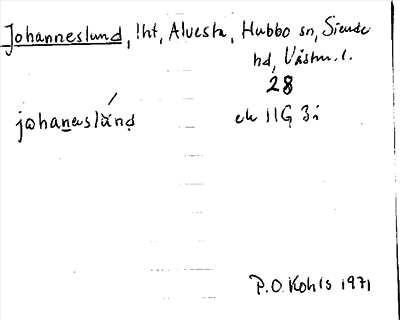 Johanneslund, lht, Alvesta, Hubbo sn, Siende
hd, Västm. l.
28
ek 11G 3i
P.O. Kohls 1971